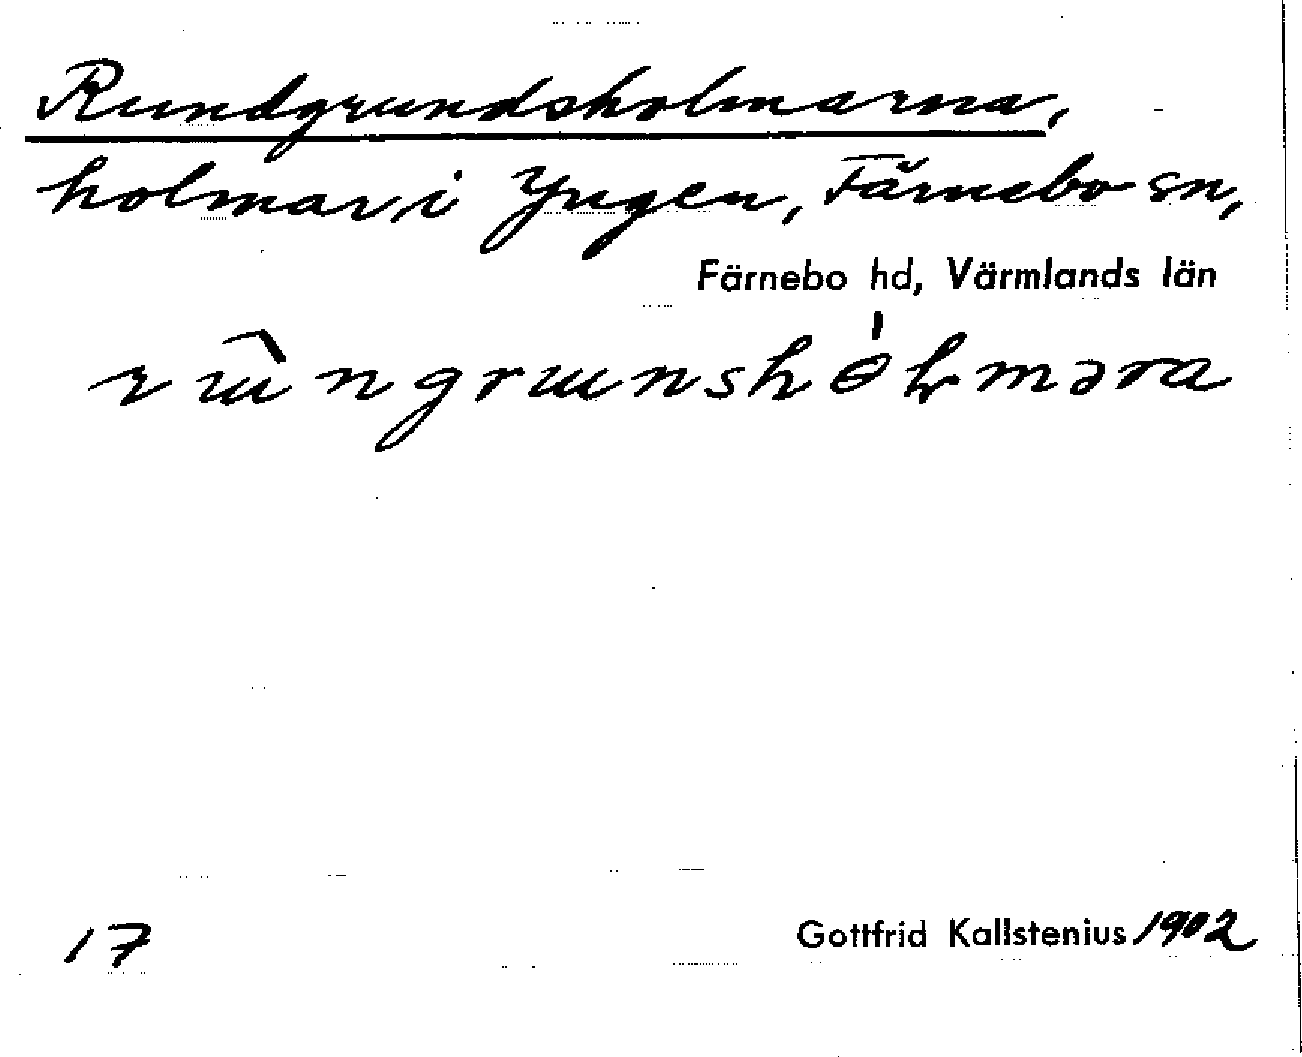 Rundgrundsholmarna,
holmar i Yngen, Färnebo sn,
Färnebo hd, Värmlands län
17
Gottfrid Kallstenius 1902